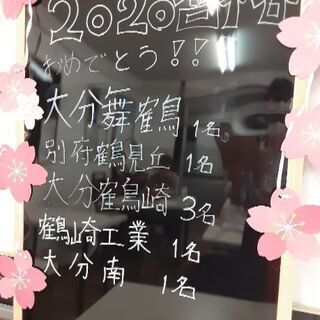 2020合格
おめでとう!!
大分舞鶴 1名。
別府鶴見丘 1名
大分鶴崎 3名
鶴崎工業 1名
大分南 1名